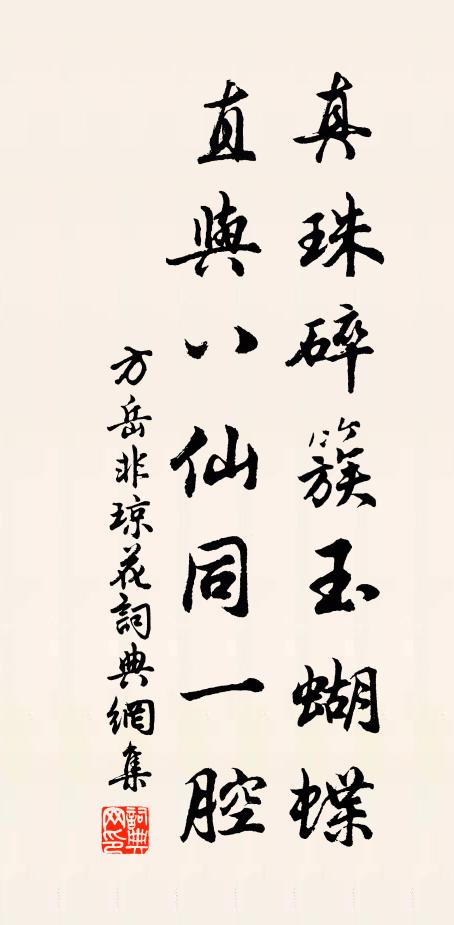 真珠碎簇玉蝴蝶
直與八仙同一腔
方岳非琼花詞典網集
詞典
网印